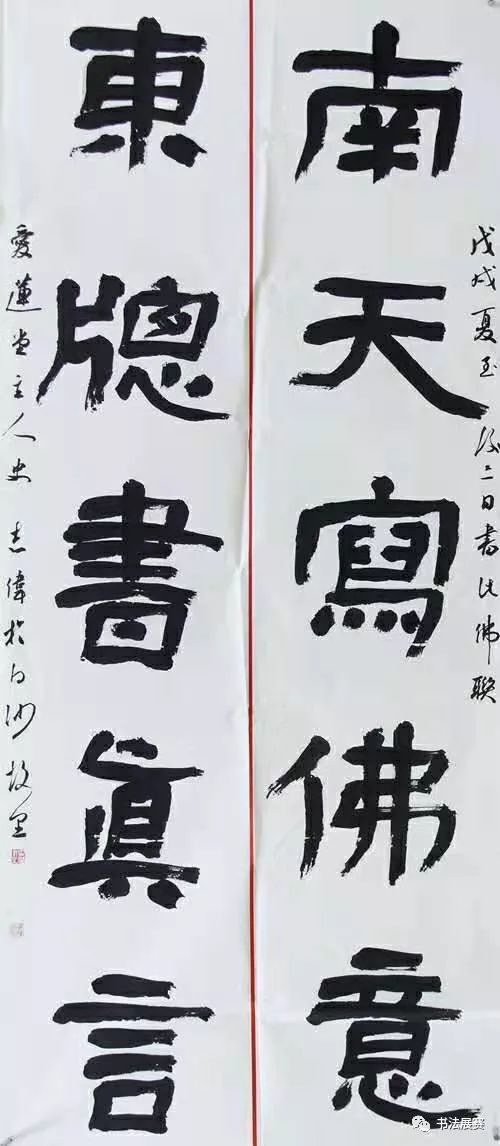 戊戌夏至後二日書佛聯
南天寫佛意
東牕書眞言
愛蓮堂主人史志偉於白沙故里
书法展赛